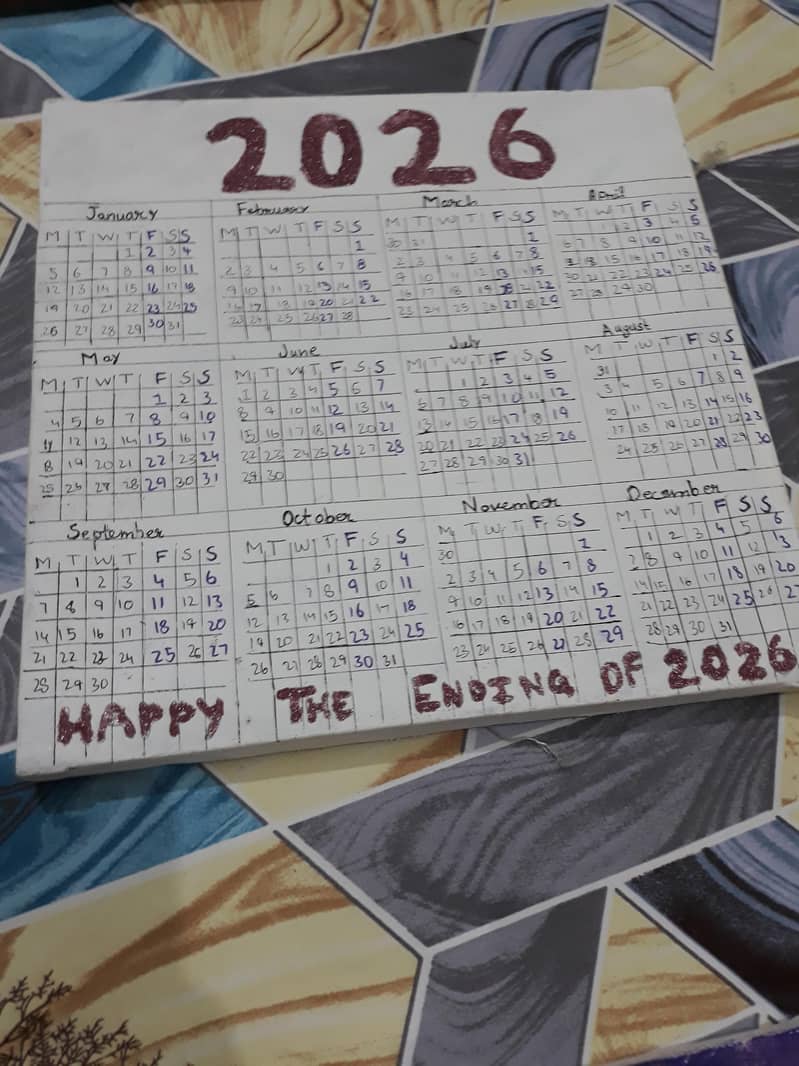 2026
January
M T W T F S S
1 2 3 4
5 6 7 8 9 10 11
12 13 14 15 16 17 18
19 20 21 22 23 24 25
26 27 28 29 30 31
February
M T W T F S S
1
2 3 4 5 6 7 8
9 10 11 12 13 14 15
16 17 18 19 20 21 22
23 24 25 26 27 28
March
M T W T F S S
30 31 1
2 3 4 5 6 7 8
9 10 11 12 13 15
16 17 18 19 20 21 22
23 24 25 26 27 28 29
April
M T W T F S S
1 2 3 4 5
6 7 8 9 10 11 12
13 15 16 17 18 19
20 21 22 23 24 25 26
27 28 29 30
May
M T W T F S S
1 2 3
4 5 6 7 8 9 10
11 12 13 14 15 16 17
8 19 20 21 22 23 24
25 26 27 28 29 30 31
June
M T W T F S S
1 2 3 4 5 6 7
8 9 10 11 12 13 14
15 16 17 18 19 20 21
22 23 24 25 26 27 28
29 30
July
M T W T F S S
1 2 3 4 5
6 7 8 9 10 11 12
13 14 15 16 17 18 19
20 21 22 23 24 25 26
27 28 29 30 31
August
M T W T F S S
31 1 2
3 4 5 6 7 8 9
10 11 12 13 14 15 16
17 18 19 20 21 22 23
24 25 26 27 28 29 30
September
M T W T F S S
1 2 3 4 5 6
7 8 9 10 11 12 13
14 15 16 17 18 19 20
21 22 23 24 25 26 27
28 29 30
October
M T W T F S S
1 2 3 4
5 6 7 8 9 10 11
12 13 14 15 16 17 18
19 20 21 22 23 24 25
26 27 28 29 30 31
November
M T W T F S S
30 1
2 3 4 5 6 7 8
9 10 11 12 13 14 15
16 17 18 19 20 21 22
23 24 25 26 27 28 29
December
M T W T F S S
1 2 3 4 5 6
8 9 10 11 12 13
14 15 16 17 18 19 20
21 22 23 24 25 26 27
28 29 30 31
HAPPY THE ENDING OF 2026